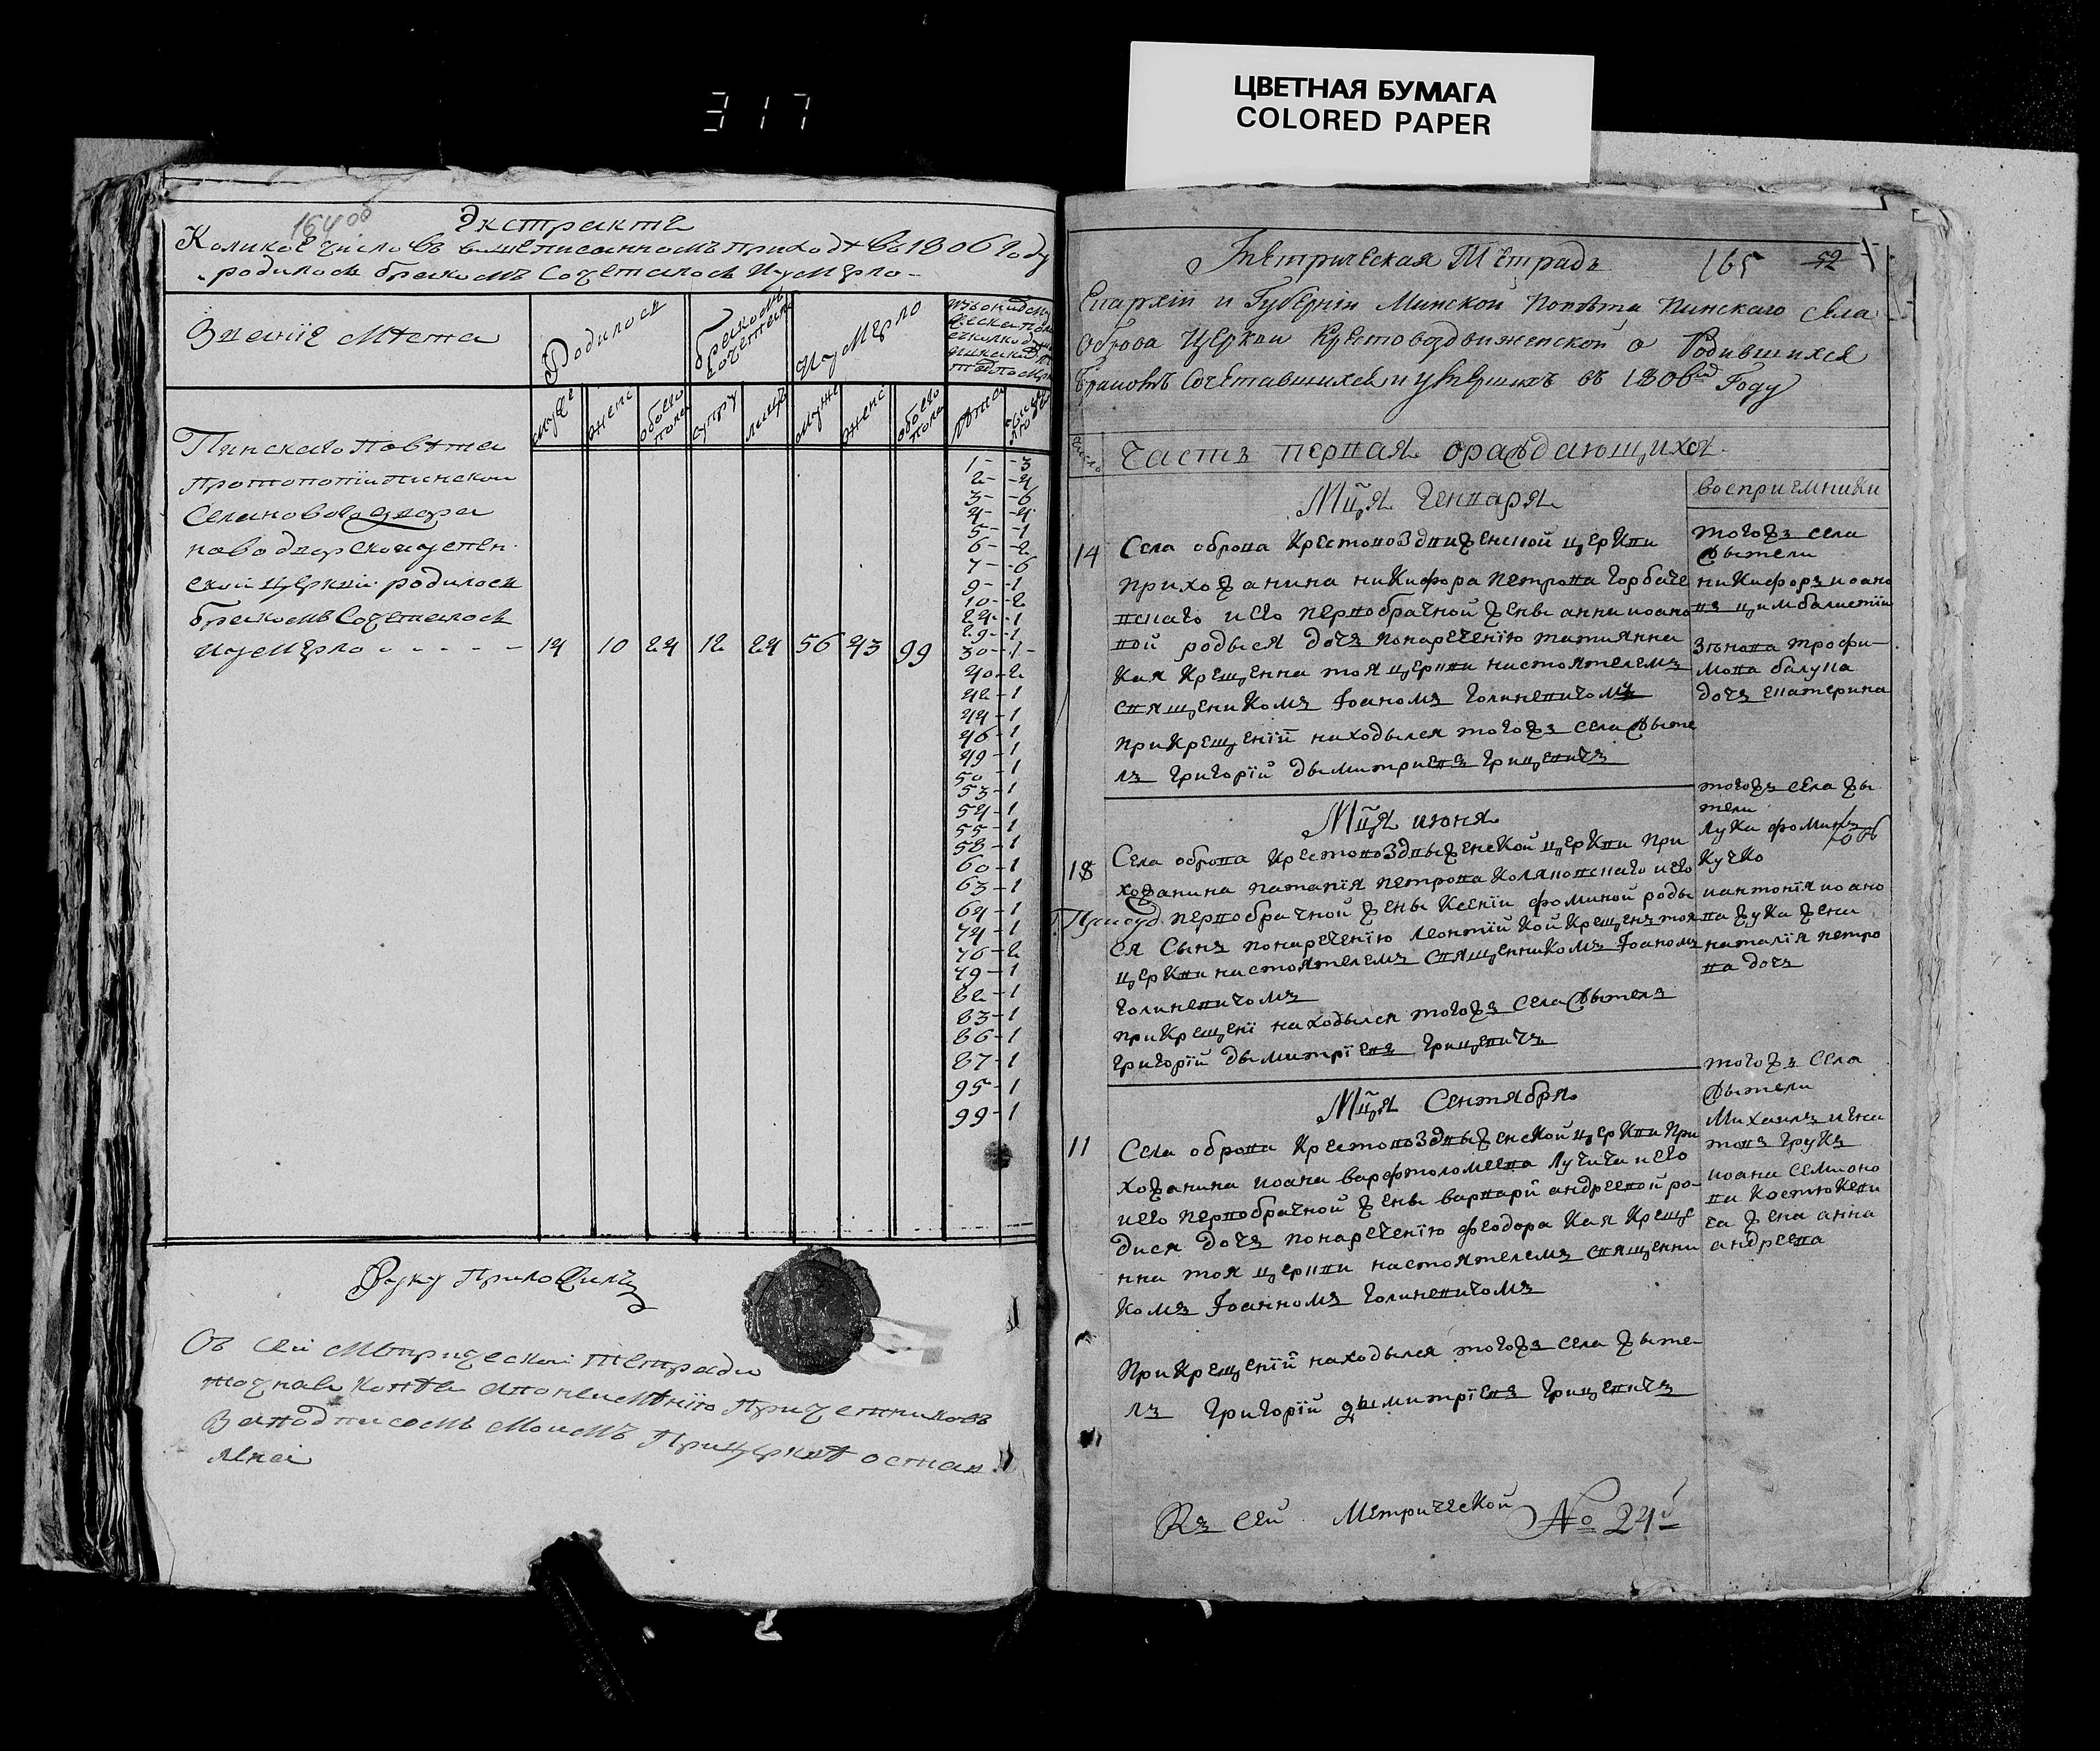 317
ЦВЕТНАЯ БУМАГА
COLORED PAPER
164 об
Экстрактъ
Коликое число въ вышеписанномъ приходѣ въ 1806 Году
родилось бракомъ Сочеталось И умерло
Званіе мѣста
Родилось
бракомъ сочеталось
И умерло
муже
жено
обоего пола
супру
лицъ
муже
женс
обоего пола
лѣта
Пинскаго повѣта
протопопіи пинской
Села новаго двора
новодворской успен
ской церкви родилось
бракомъ Сочеталось
и умерло - - - - - 14 10 24 12 24 56 43 99
1 - - 3
2 - - 4
3 - - 6
4 - - 4
5 - - 1
6 - - 2
7 - - 6
9 - - 1
10 - - 2
24 - 1
29 - 1
30 - 1 -
40 - 2
42 - 1
44 - 1
46 - 1
49 - 1
50 - 1
53 - 1
54 - 1
55 - 1
58 - 1
60 - 1
63 - 1
64 - 1
74 - 1
76 - 2
79 - 1
82 - 1
83 - 1
86 - 1
87 - 1
95 - 1
99 - 1
Руку Приложилъ
Съ сей Метрической Тетради
точная копѣя
За подписомъ моимъ При церквѣ остав
лена
Метрическая Тетрадь 165 52
Епархіи и Губерніи Минской Повѣта Пинскаго Села
Оброва Церкви Крестовоздвиженской о Родившихся
Бракомъ Сочетавшихся и умершихъ въ 1806мъ Году
Число
Часть первая ораждающихся
Мця Генваря
восприемники
14
Села оброва Крестовоздвиженской церкви
прихожанина никифора петрова горбаче
вскаго и его первобрачной жены анны иоано
вой родыся дочъ понаречению татиянна
Кая Крещенна тоя церкви настоятелемъ
священикомъ Іоаномъ Голиневичомъ
при Крещеніи находылся тогожъ села жыте
лъ григорій дымитриевъ грицевичъ
тогожъ села
жытели
никифоръ иоано
въ цимбалистій
трофи-
мова балуна
дочъ екатерина
Мця июня
18
Села оброва Крестовоздвыженской церкви При
хожанина патапія петрова Коляновскаго и его
первобрачной жены Ксеніи фоминой роды
ся Сынъ понаречению леонтій Кой Крещенъ тоя
церкви настоятелемъ священникомъ Іоаномъ
голиневичомъ
при Крещені находылся тогожъ села жытель
григорій дымитріевъ грицевичъ
тогожъ села жы
тели
лука фоминъ
Кучко
и антонія иоано
ва жука жена
наталія петро
ва дочъ
Мця Сентября
11
Села оброва Крестовоздвыженской церкви При
хожанина иоана варфтоломеева лучича и его
и его первобрачной жены варвары андреевой ро-
дися дочъ понаречению феодора Кая Креще
нна тоя церкви настоятелемъ священни
комъ Іоанномъ голиневичомъ
При Крещеніи находылся тогожъ села жыте-
лъ григорій дымитріевъ грицевичъ
тогожъ села
жытели
Михаилъ игна
товъ грукъ
иоана семионо
ва Костюкеви
ча жена анна
андреева
Къ сей Метрической № 24й